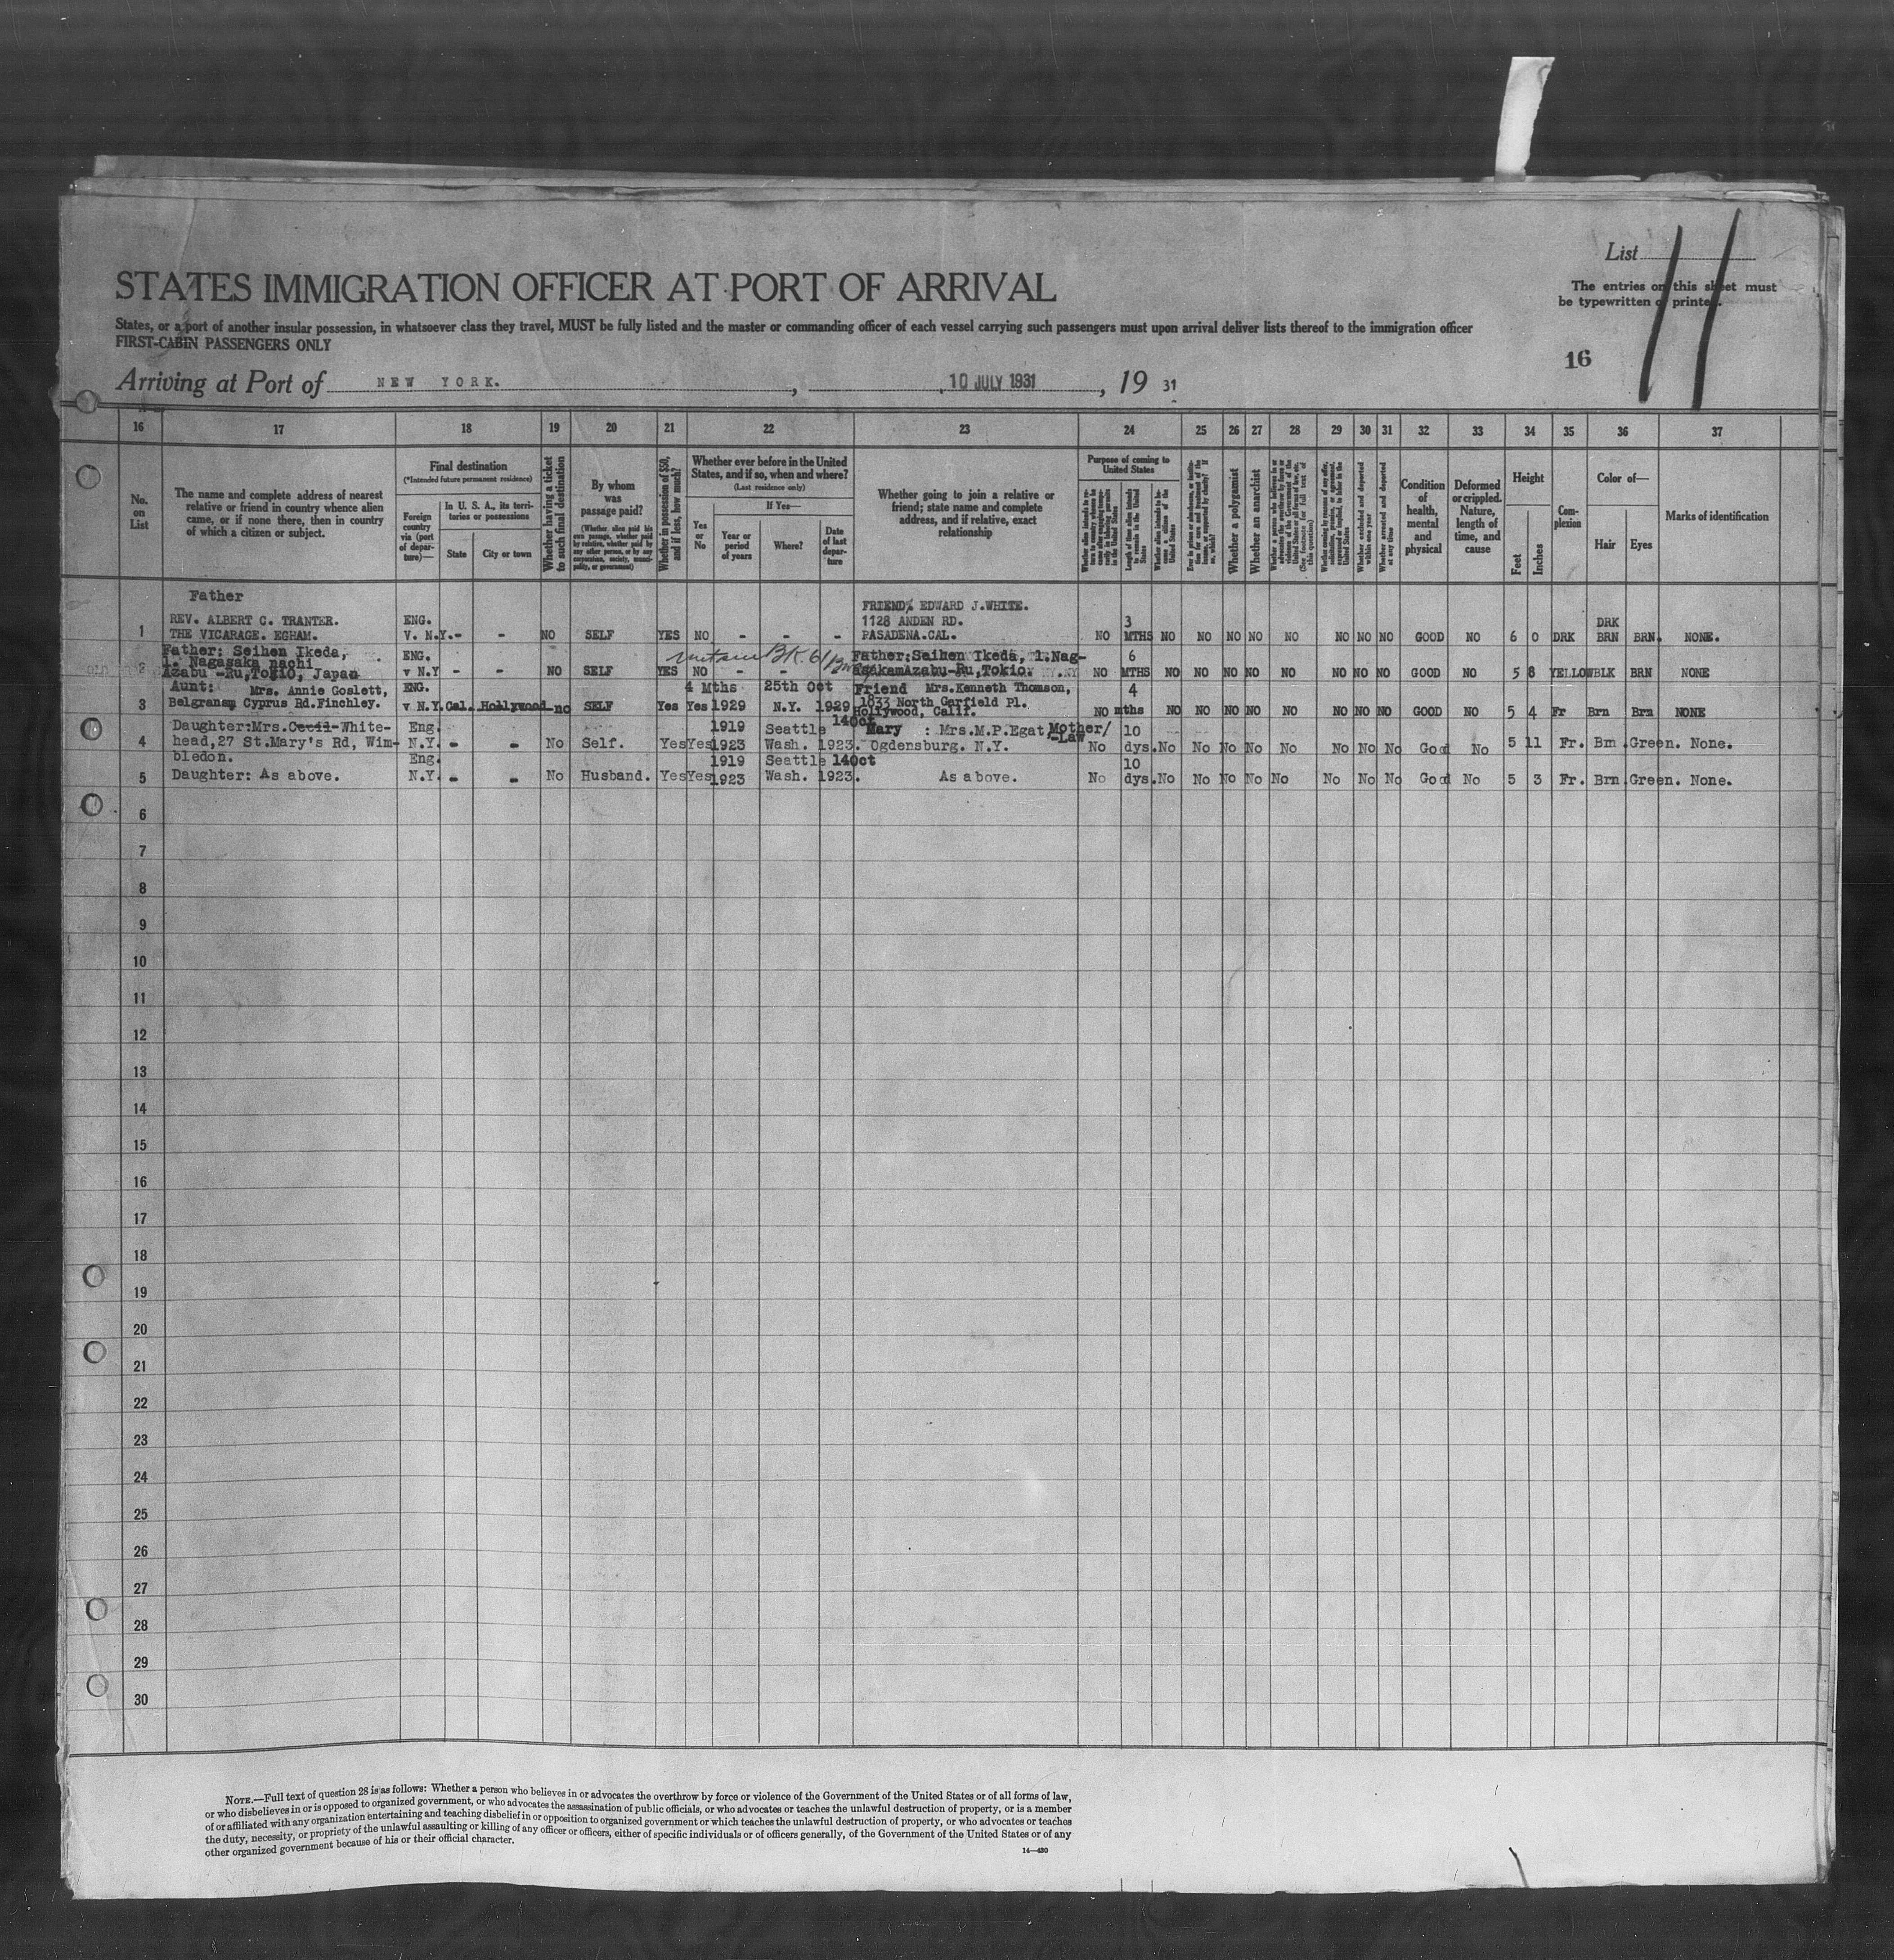 List
11
STATES IMMIGRATION OFFICER AT PORT OF ARRIVAL
The entries on this sheet must
be typewritten or printed.
States, or a port of another insular possession, in whatsoever class they travel, MUST be fully listed and the master or commanding officer of each vessel carrying such passengers must upon arrival deliver lists thereof to the immigration officer
FIRST-CABIN PASSENGERS ONLY
16
Arriving at Port of NEW YORK. , 10 JULY 1931 , 19 31
16 17 18 19 20 21 22 23 24 25 26 27 28 29 30 31 32 33 34 35 36 37
No. on List
The name and complete address of nearest
relative or friend in country whence alien
came, or if none there, then in country
of which a citizen or subject.
Final destination
(*Intended future permanent residence)
Foreign country via (port of departure)—
In U. S. A., its territories or possessions
State
City or town
Whether having a ticket to such final destination
By whom was passage paid?
(Whether alien paid his own passage, whether paid by relative, whether paid by any other person, or by any corporation, society, municipality, or government)
Whether in possession of $50, and if less, how much?
Whether ever before in the United
States, and if so, when and where?
(Last residence only)
Yes or No
If Yes—
Year or period of years
Where?
Date of last departure
Whether going to join a relative or
friend; state name and complete
address, and if relative, exact
relationship
Purpose of coming to United States
Length of time alien intends to remain in the United States
Whether a polygamist
Whether an anarchist
Whether arrested and deported at any time
Condition of health, mental and physical
Deformed or crippled. Nature, length of time, and cause
Height
Feet
Inches
Complexion
Color of—
Hair
Eyes
Marks of identification
Father
REV. ALBERT C. TRANTER. ENG. FRIEND, EDWARD J. WHITE. 3 DRK
1128 ANDEN RD.
1 THE VICARAGE. EGHAM. V. N.Y. - - NO SELF YES NO - - - PASADENA.CAL. NO MTHS NO NO NO NO NO NO NO NO GOOD NO 6 0 DRK BRN BRN. NONE.
Father: Seihen Ikeda, ENG. Father:Seihen Ikeda, 1.Nag- 6
1. Nagasaka machi
2 Azabu -Ru,Tokio, Japan v N.Y - - NO SELF YES NO - - - asakamAzabu-Ru,Tokio. NO MTHS NO NO NO NO NO NO NO NO GOOD NO 5 8 YELLOW BLK BRN NONE
Aunt: Mrs. Annie Goslett, ENG. 4 Mths 25th Oct Friend Mrs.Kenneth Thomson, 4
1833 North Garfield Pl.
3 Belgranam Cyprus Rd.Finchley. v N.Y. Cal. Hollywood no SELF Yes Yes 1929 N.Y. 1929 Hollywood, Calif. NO mths NO NO NO NO NO NO NO NO GOOD NO 5 4 Fr Brn Brn NONE
Daughter:Mrs.Cecil-White- Eng. 1919 Seattle 14Oct Mary : Mrs.M.P.Egat Mother/ 10
-Law
4 head,27 St.Mary's Rd, Wim- N.Y. - - No Self. Yes Yes 1923 Wash. 1923. Ogdensburg. N.Y. No dys. No No No No No No No No Good No 5 11 Fr. Brn .Green. None.
bledon. Eng. 1919 Seattle 14Oct 10
5 Daughter: As above. N.Y. - - No Husband. Yes Yes 1923 Wash. 1923. As above. No dys. No No No No No No No No Good No 5 3 Fr. Brn .Green. None.
6
7
8
9
10
11
12
13
14
15
16
17
18
19
20
21
22
23
24
25
26
27
28
29
30
NOTE.—Full text of question 28 is as follows: Whether a person who believes in or advocates the overthrow by force or violence of the Government of the United States or of all forms of law,
or who disbelieves in or is opposed to organized government, or who advocates the assassination of public officials, or who advocates or teaches the unlawful destruction of property, or is a member
of or affiliated with any organization entertaining and teaching disbelief in or opposition to organized government or which teaches the unlawful destruction of property, or who advocates or teaches
the duty, necessity, or propriety of the unlawful assaulting or killing of any officer or officers, either of specific individuals or of officers generally, of the Government of the United States or of any
other organized government because of his or their official character.
14—430